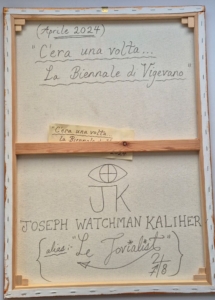 (Aprile 2024)
"C'era una volta...
La Biennale di Vigevano"
"C'era una volta
la Biennale di
JK
JOSEPH WATCHMAN KALIHER
{alias: "Le Jovialist"}